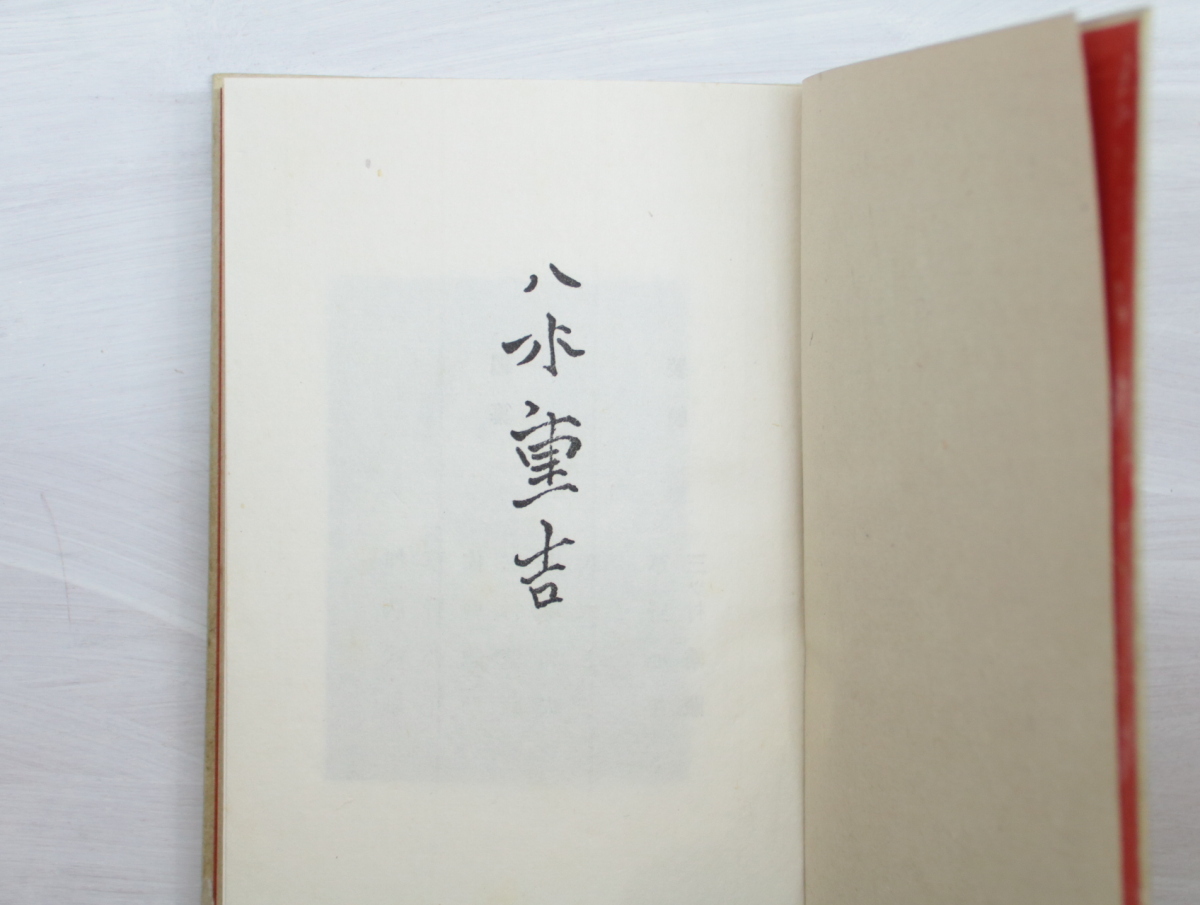 八木重吉